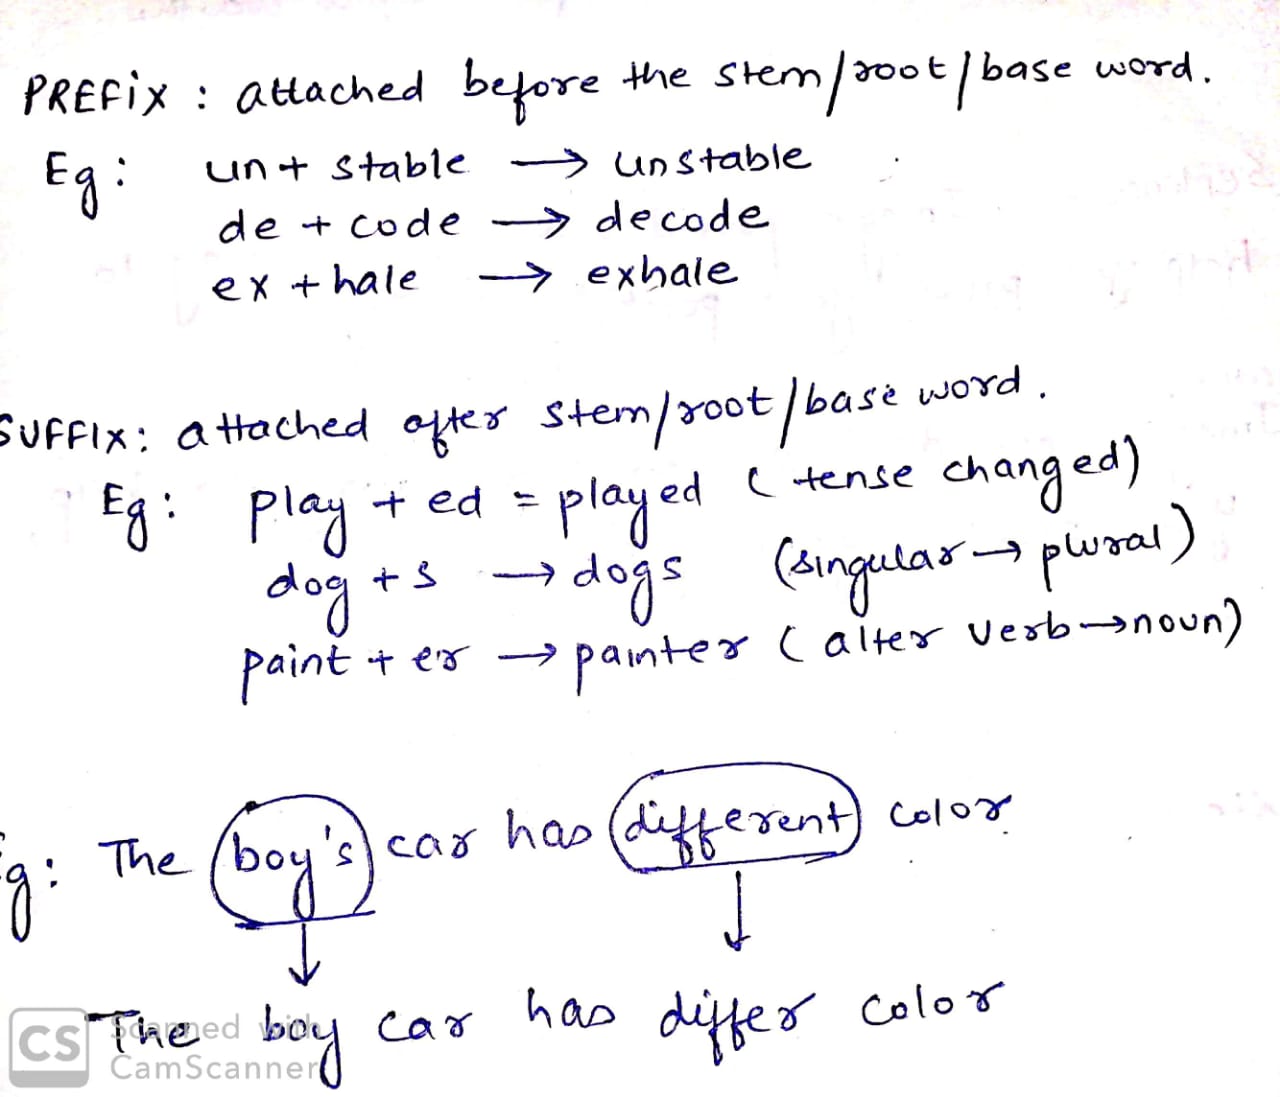 PREFiX : attached before the stem/root/base word.
Eg: un + stable → unstable
de + code → decode
ex + hale → exhale
SUFFIX: attached after stem/root/base word.
Eg: play + ed = played (tense changed)
dog + s → dogs (singular → plural)
paint + er → painter (alter verb→noun)
Eg: The boy's car has different color
↓ ↓
The boy car has differ color
CS Scanned with
CamScanner